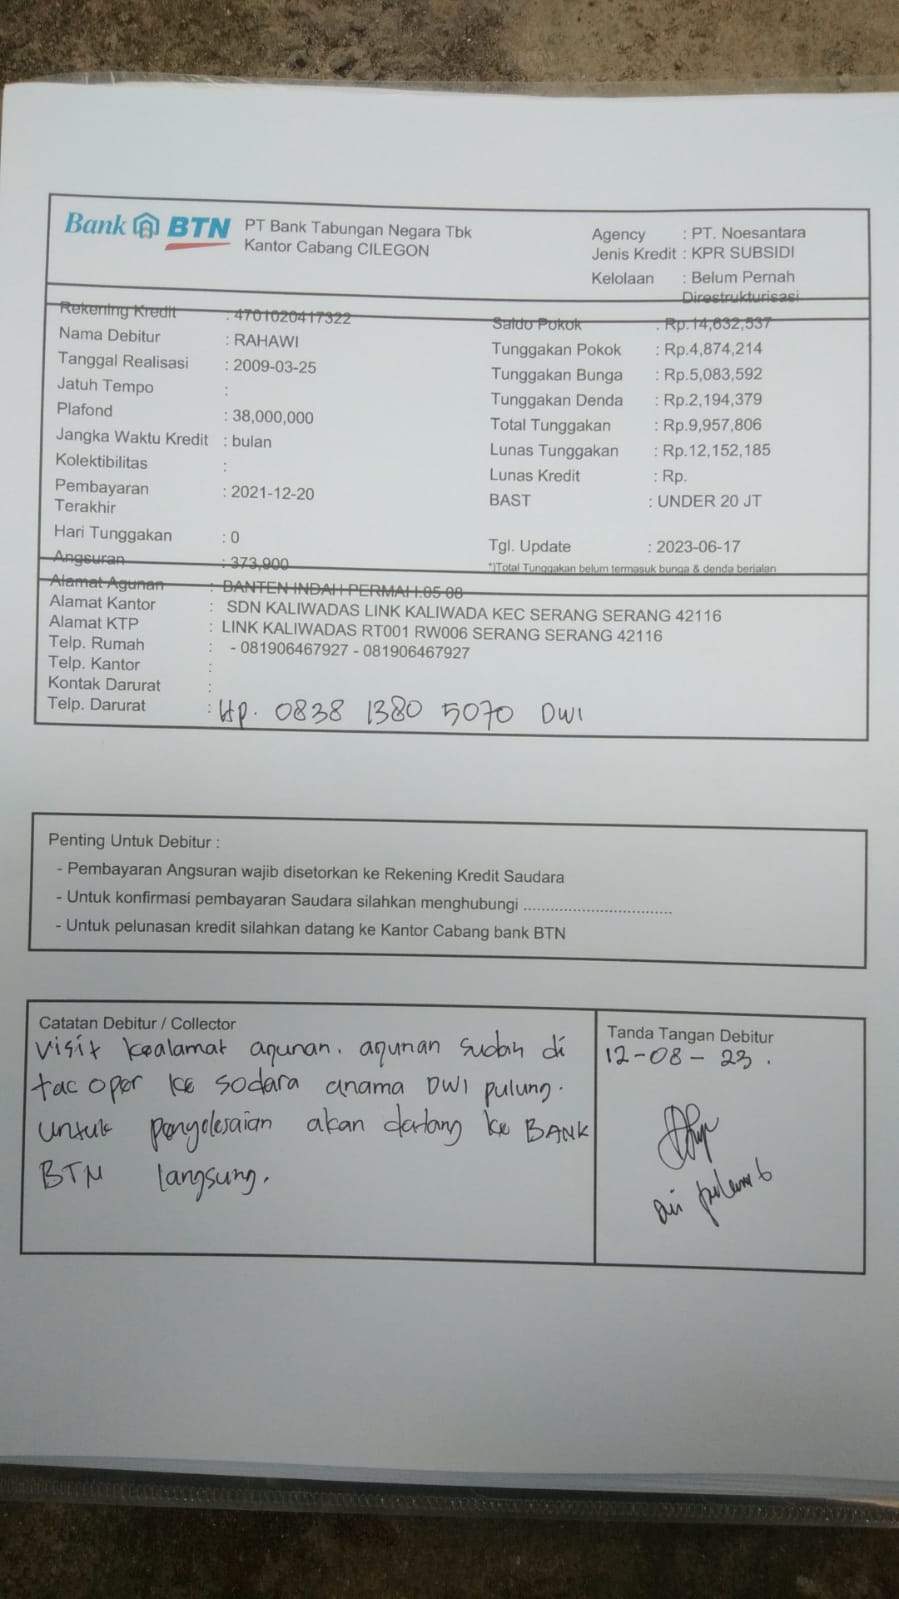 Bank BTN PT Bank Tabungan Negara Tbk
Kantor Cabang CILEGON
Agency : PT. Noesantara
Jenis Kredit : KPR SUBSIDI
Kelolaan : Belum Pernah
Direstrukturisasi
Rekening Kredit : 4701020417322
Nama Debitur : RAHAWI
Tanggal Realisasi : 2009-03-25
Jatuh Tempo :
Plafond : 38,000,000
Jangka Waktu Kredit : bulan
Kolektibilitas :
Pembayaran : 2021-12-20
Terakhir
Hari Tunggakan : 0
Angsuran : 373,900
Saldo Pokok : Rp.14,632,537
Tunggakan Pokok : Rp.4,874,214
Tunggakan Bunga : Rp.5,083,592
Tunggakan Denda : Rp.2,194,379
Total Tunggakan : Rp.9,957,806
Lunas Tunggakan : Rp.12,152,185
Lunas Kredit : Rp.
BAST : UNDER 20 JT
Tgl. Update : 2023-06-17
*)Total Tunggakan belum termasuk bunga & denda berjalan
Alamat Agunan : BANTEN INDAH PERMAI
Alamat Kantor : SDN KALIWADAS LINK KALIWADA KEC SERANG SERANG 42116
Alamat KTP : LINK KALIWADAS RT001 RW006 SERANG SERANG 42116
Telp. Rumah : - 081906467927 - 081906467927
Telp. Kantor :
Kontak Darurat :
Telp. Darurat : Hp. 0838 1380 5070 DWI
Penting Untuk Debitur :
- Pembayaran Angsuran wajib disetorkan ke Rekening Kredit Saudara
- Untuk konfirmasi pembayaran Saudara silahkan menghubungi ..................................
- Untuk pelunasan kredit silahkan datang ke Kantor Cabang bank BTN
Catatan Debitur / Collector
visit kealamat agunan. agunan sudah di
tac oper ke sodara anama DWI pulung.
untuk penyelesaian akan datang ke BANK
BTN langsung.
Tanda Tangan Debitur
12-08-23.